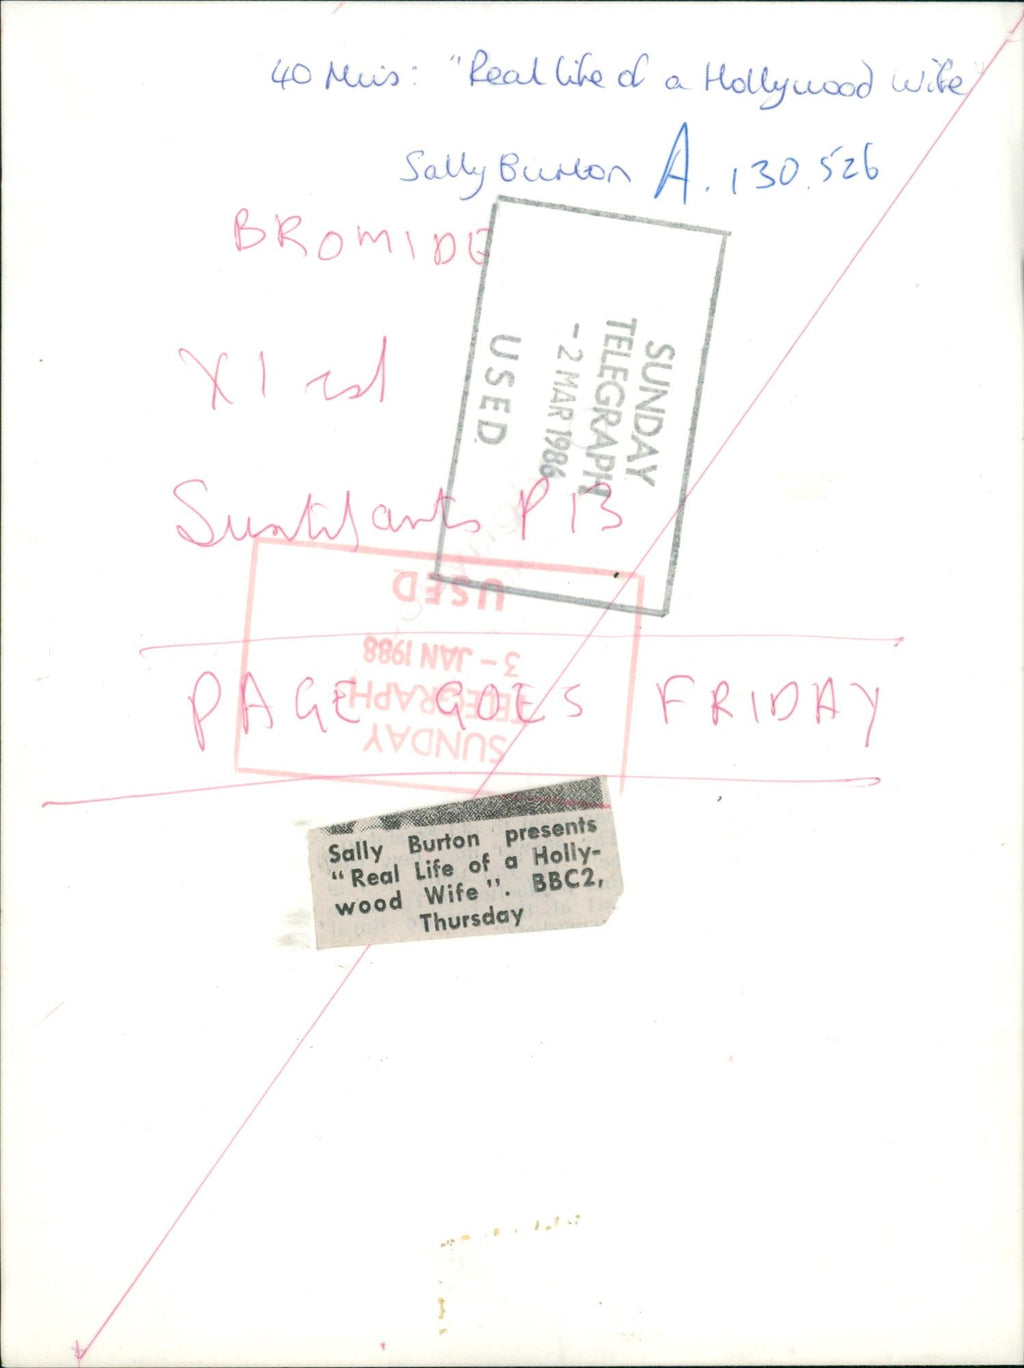 40 Mins: "Real Life of a Hollywood Wife"
Sally Burton A.130.526
BROMIDE
X1 col
P 13
SUNDAY
TELEGRAPH
- 2 MAR 1986
USED
SUNDAY
TELEGRAPH
3 - JAN 1988
USED
PAGE GOES FRIDAY
Sally Burton presents
“Real Life of a Holly-
wood Wife”. BBC2,
Thursday